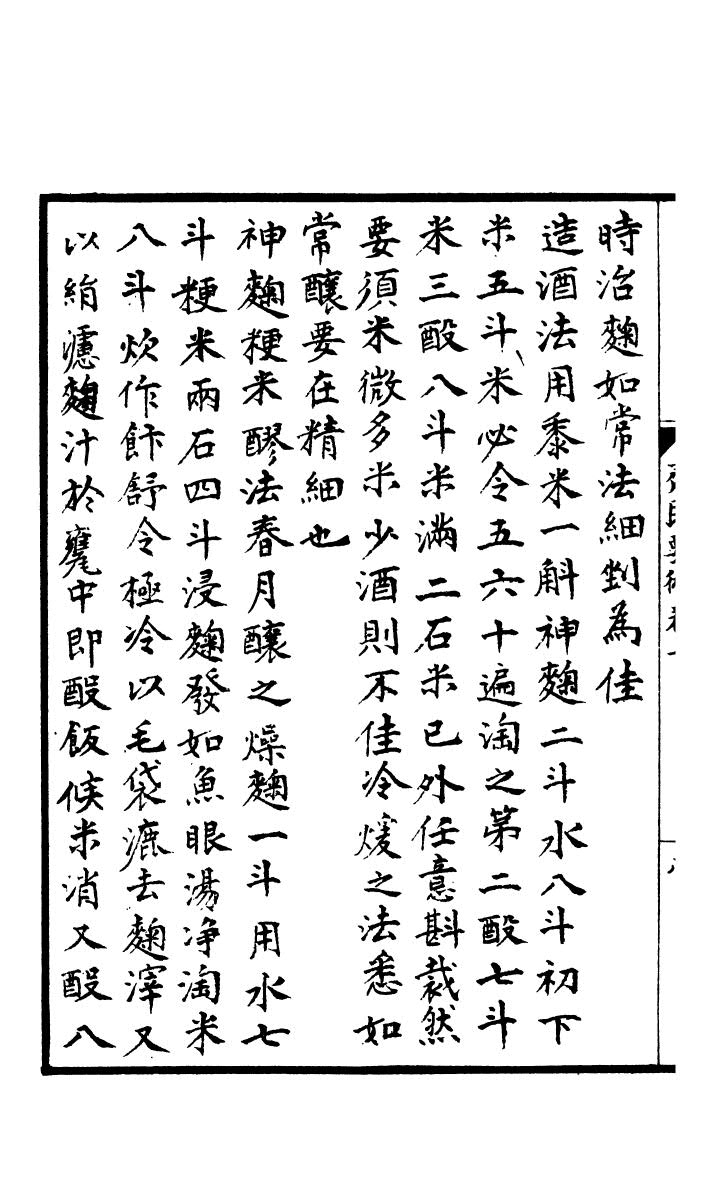 時治麴如常法細剉為佳
造酒法用黍米一斛神麴二斗水八斗初下
米五斗米必令五六十遍淘之第二酘七斗
米三酘八斗米滿二石米已外任意斟裁然
要須米微多米少酒則不佳冷煖之法悉如
常釀要在精細也
神麴粳米醪法春月釀之燥麴一斗用水七
斗粳米兩石四斗浸麴發如魚眼湯净淘米
八斗炊作飰舒令極冷以毛袋漉去麴滓又
以絹濾麴汁於甕中即酘飯候米消又酘八